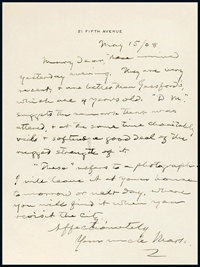 21 FIFTH AVENUE
May 15/08
Dear, these arrived
yesterday evening. They are very
recent, & are better than Gessford's,
which are 4 years old. "D. M."
suggests the
& at the same time charitably
veils & softens a good deal of the
rugged strength of it.
"These" refers to a photograph.
I will leave it at your house
tomorrow or next day, where
you will find it when you
revisit the city.
Affectionately
Mark.